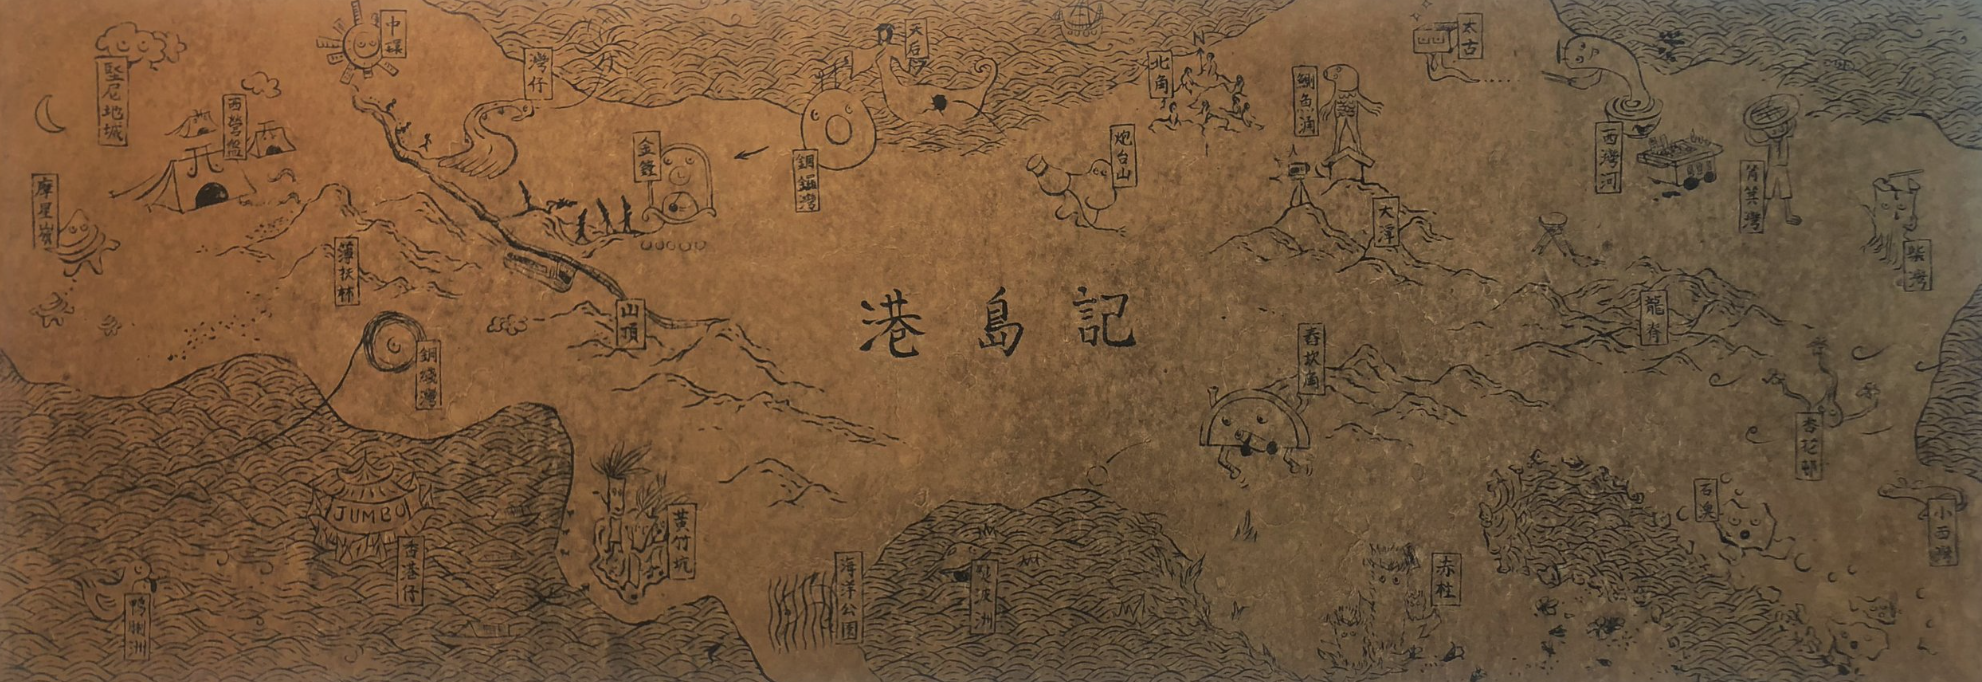 中環
堅尼地城
灣仔
天后
太古
北角
西營盤
鰂魚涌
炮台山
金鐘
銅鑼灣
西灣河
筲箕灣
摩星嶺
大潭
薄扶林
柴灣
山頂
港島記
龍脊
舂坎角
鋼綫灣
杏花邨
JUMBO
香港仔
黃竹坑
石澳
小西灣
海洋公園
赤柱
鴨脷洲